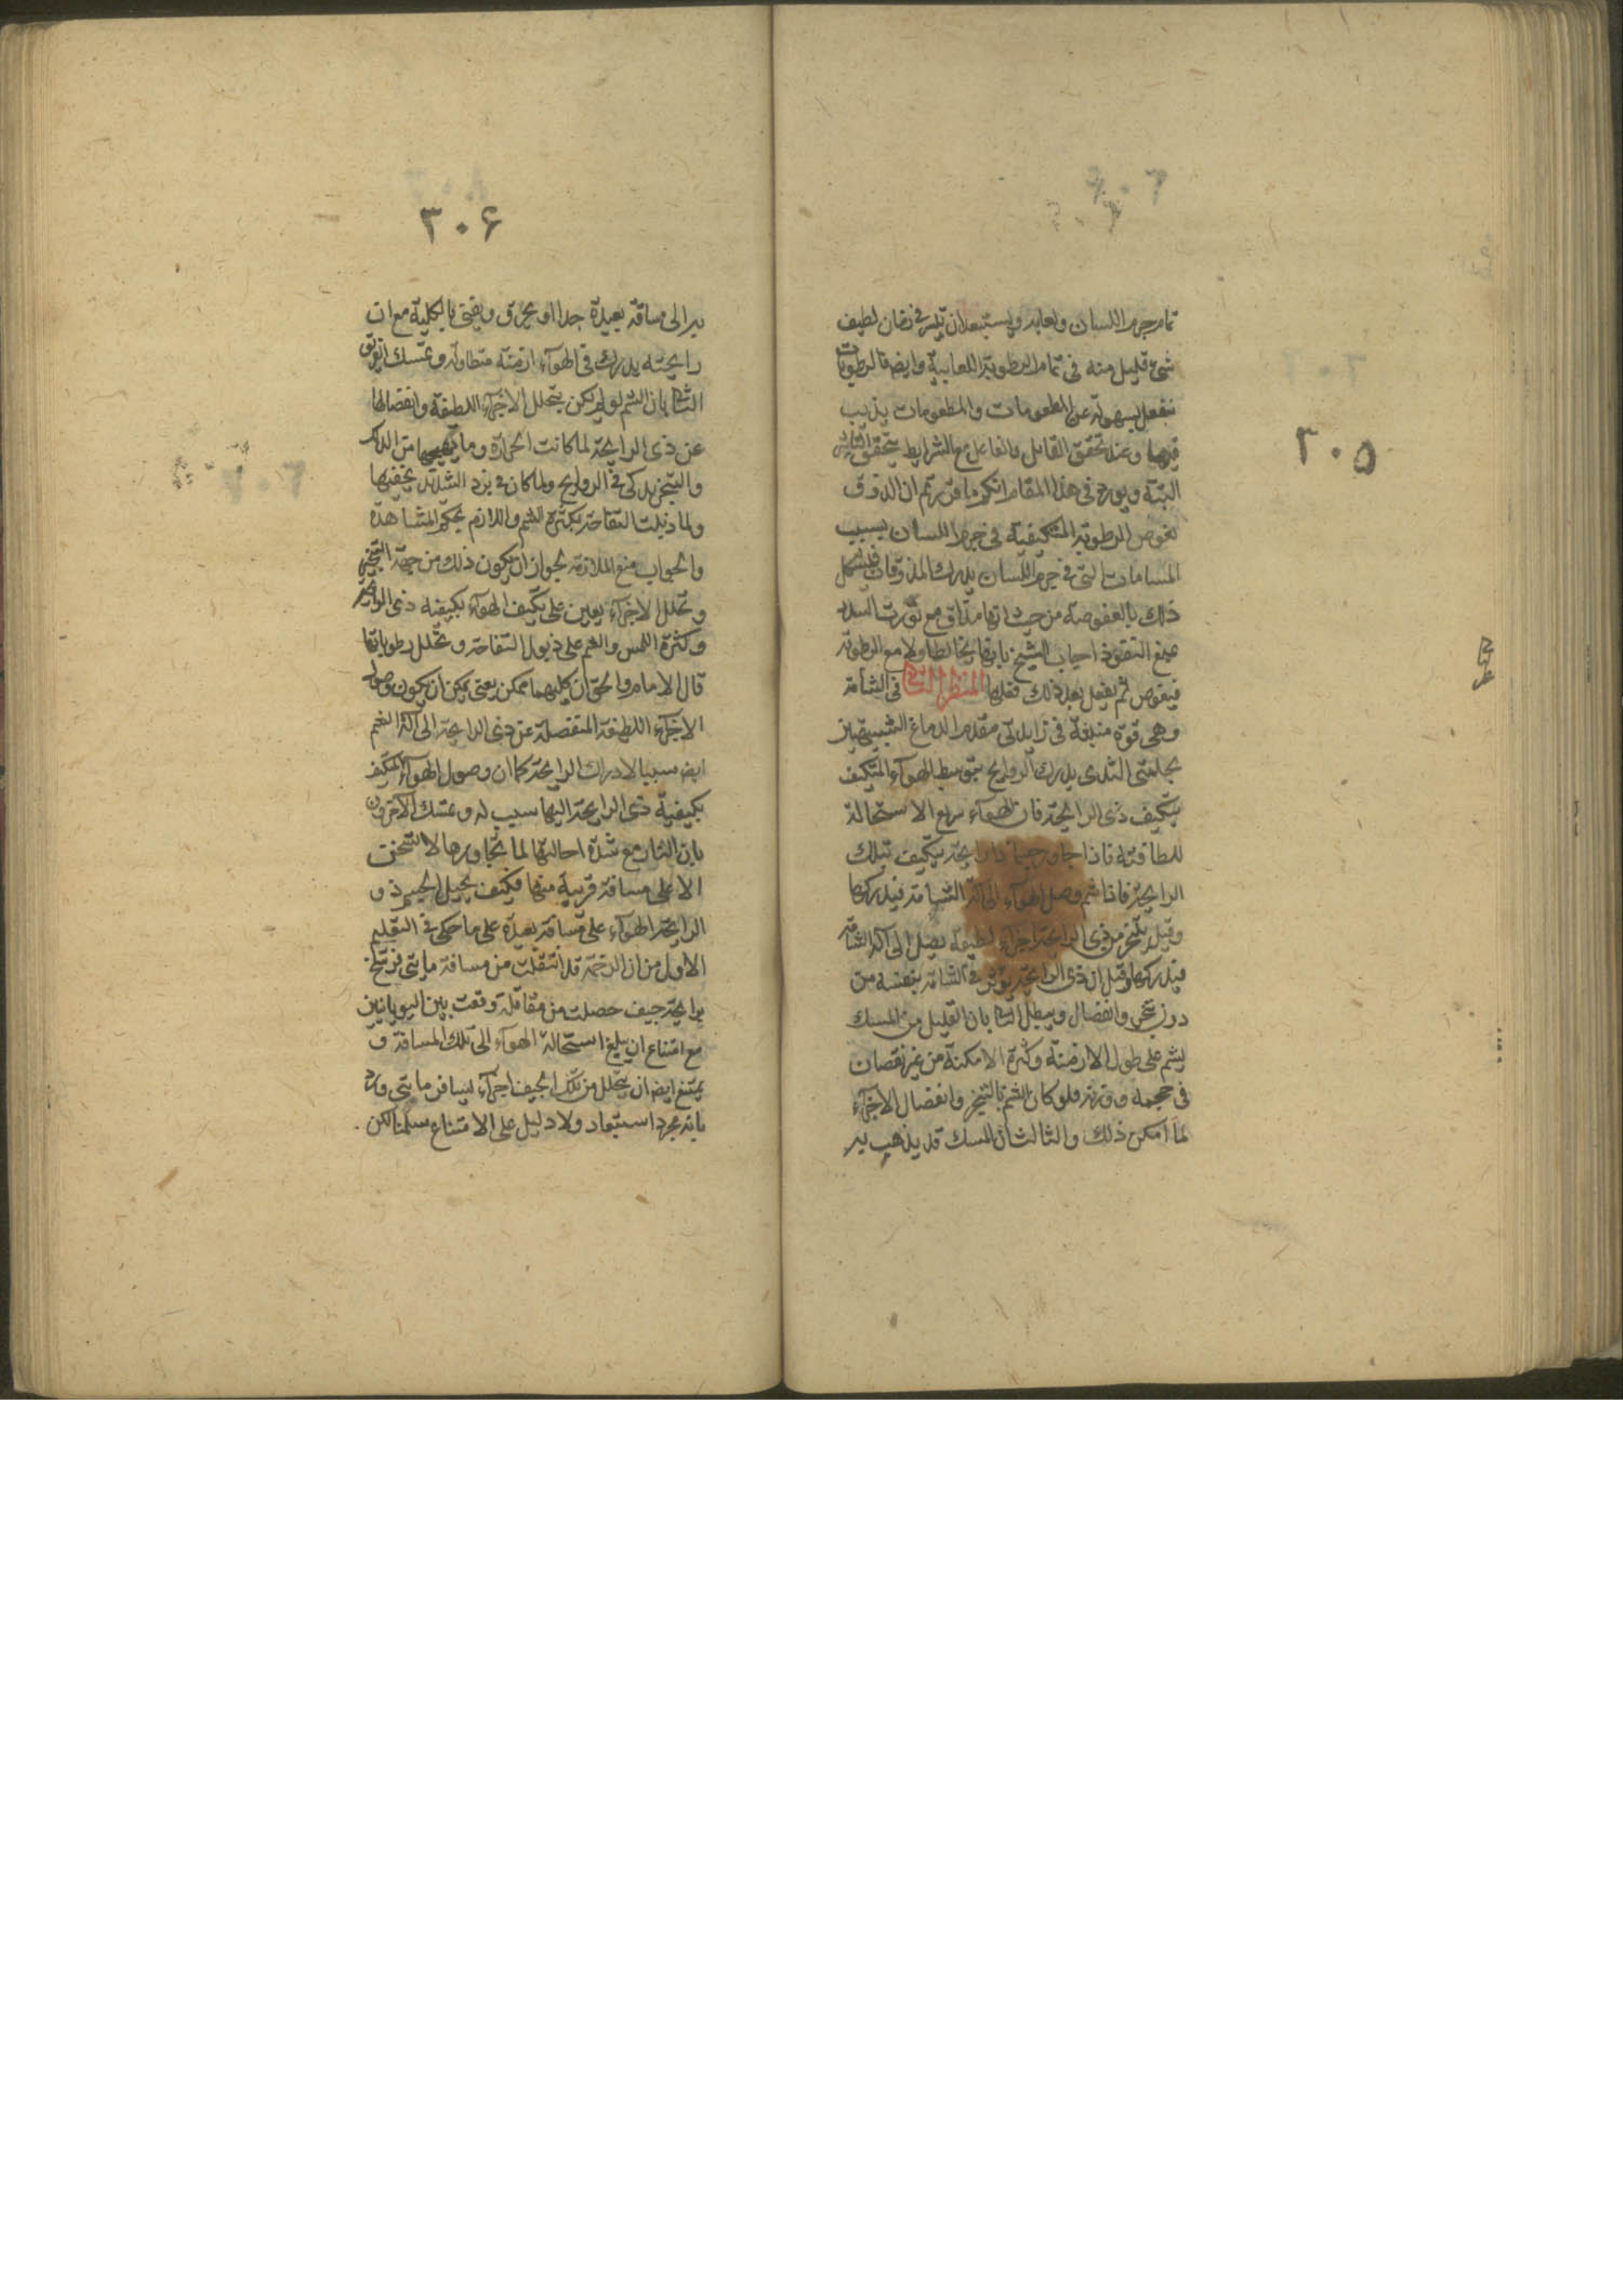 ٣٠٥
تمام جرم اللسان ولعابه ويستبعد ان ينتشر في زمان لطيف
شئ قليل منه في تمام الرطوبة اللعابية وايضا الرطوبات
تنفعل بسهولة عن المطعومات والمطعومات يذيب
فيها وعند تحقق القابل والفاعل مع الشرايط يتحقق التاثير
البتة ويورد في هذا المقام انكم ان الذوق
بغوص الرطوبة المتكيفية في جرم اللسان بسبب
المسامات التى في جرم اللسان يدرك المذوقات فيشكل
ذلك بالعفوصة من حيث انها مع تورث السدد
يمنع النفوذ اجاب الشيخ بانها يخالط اولا مع الرطوبة
فيغوص ثم يفعل بعد ذلك فعلها المنظر الثانى في الشامة
وهى قوة منبثة في زايدتى مقدم الدماغ الشبيهتين
بحلمتى الثدى يدرك الروايح بتوسط الهوآء المتكيف
بتكيف ذى الرايحة فان الهوآء سريع الاستحالة
للطافته فاذا جاور جسما ذا رايحة يتكيف بتلك
الرايحة فاذا شم وصل الهوآء الى آلة الشامة فيدركها
وقيل يتبخر من ذى الرايحة اجزآء لطيفة يصل الى آلة الشامة
فيدركها وقيل ان ذى الرايحة يؤثر في الشامة بنفسه من
دون تبخر وانفصال ويبطل الثانى بان القليل من المسك
يشم على طول الازمنة وكثرة الامكنة من غير نقصان
في حجمه ووزنه فلو كان الشم بالتبخر وانفصال الاجزآء
لما امكن ذلك والثالث ان المسك قد يذهب به
٣٠۶
به الى مسافة بعيدة جدا او يحرق ويفنى بالكلية مع ان
رايحته يدرك في الهوآء ازمنة متطاولة وتمسك
الثانى بان الشم لو لم يكن بتحلل الاجزآء اللطيفة وانفصالها
عن ذى الرايحة لما كانت الحرارة وما يهيجها من الدلك
والتبخر يذكى الروايح ولما كان برد الشديد يخفيها
ولما ذبلت التفاحة بكثرة الشم واللازم بحكم المشاهدة
والجواب منع الملازمة لجواز ان يكون ذلك من جهة التبخر
وتحلل الاجزآء يعين على تكيف الهوآء بكيفية ذى الرايحة
وكثرة اللمس والشم على ذبول التفاحة وتحلل رطوباتها
قال الامام والحق ان كليهما ممكن يعنى يمكن ان يكون وصول
الاجزآء اللطيفة المنفصلة عن ذى الرايحة الى آلة الشم
ايضا سببا لادراك الرايحة كما ان وصول الهوآء المتكيف
بكيفية ذى الرايحة اليها سبب له وتمسك الآخرون
بان النار مع شدة احالتها لما تجاورها لا تسخن
الا على مسافة قريبة منها فكيف يحيل الجسم ذو
الرايحة الهوآء على مسافة بعيدة على ما حكى في التعليم
الاول من ان الرخمة قد انتقلت من مسافة مائتى فرسخ
برايحة جيف حصلت من مقاتلة وقعت بين اليونانيين
مع امتناع ان يبلغ استحالة الهوآء الى تلك المسافة و
يمتنع ايضا ان يتحلل من تلك الجيف اجزآء ليسافر مائتى ورد
بانه مجرد استبعاد ولا دليل على الامتناع سلمنا لكن